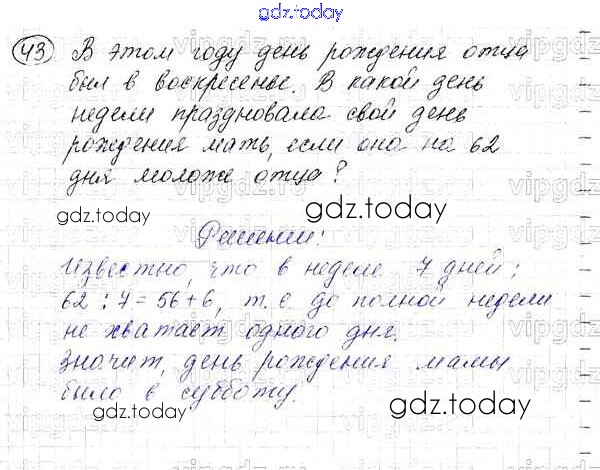 gdz.today
43 В этом году день рождения отца
был в воскресенье. В какой день
недели праздновала свой день
рождения мать, если она на 62
дня моложе отца?
gdz.today gdz.today
Решение:
Известно, что в неделе 7 дней;
62 : 7 = 56 + 6, т.е до полной недели
не хватает одного дня.
Значит, день рождения мамы
было в субботу.
gdz.today gdz.today